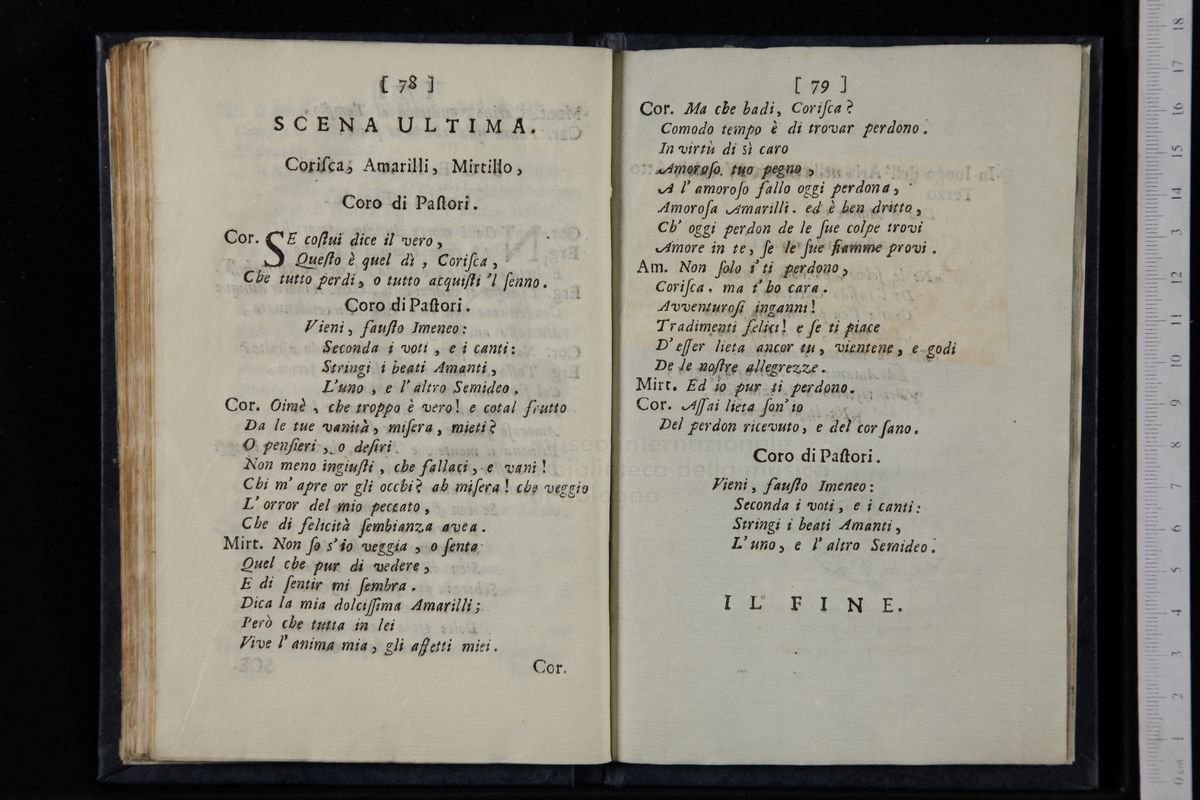 [ 78 ]
SCENA ULTIMA.
Coriſca, Amarilli, Mirtillo,
Coro di Paſtori.
Cor. SE coſtui dice il vero,
Queſto è quel dì, Coriſca,
Che tutto perdi, o tutto acquiſti 'l ſenno.
Coro di Paſtori.
Vieni, fauſto Imeneo:
Seconda i voti, e i canti:
Stringi i beati Amanti,
L'uno, e l'altro Semideo.
Cor. Oimè, che troppo è vero! e cotal frutto
Da le tue vanità, miſera, mieti?
O penſieri, o deſiri
Non meno ingiuſti, che fallaci, e vani!
Chi m'apre or gli occhi? ah miſera! che veggio
L'orror del mio peccato,
Che di felicità ſembianza avea.
Mirt. Non ſo s'io veggia, o ſenta
Quel che pur di vedere,
E di ſentir mi ſembra.
Dica la mia dolciſſima Amarilli;
Però che tutta in lei
Vive l'anima mia, gli affetti miei.
Cor.
[ 79 ]
Cor. Ma che badi, Coriſca?
Comodo tempo è di trovar perdono.
In virtù di sì caro
Amoroſo. tuo pegno,
A l'amoroſo fallo oggi perdona,
Amoroſa Amarilli. ed è ben dritto,
Ch'oggi perdon de le ſue colpe trovi
Amore in te, ſe le ſue fiamme provi.
Am. Non ſolo i'ti perdono,
Coriſca, ma t'ho cara.
Avventuroſi inganni!
Tradimenti felici! e ſe ti piace
D'eſſer lieta ancor tu, vientene, e godi
De le noſtre allegrezze.
Mirt. Ed io pur ti perdono.
Cor. Aſſai lieta ſon'io
Del perdon ricevuto, e del cor ſano.
Coro di Paſtori.
Vieni, fauſto Imeneo:
Seconda i voti, e i canti:
Stringi i beati Amanti,
L'uno, e l'altro Semideo.
IL FINE.
museo internazionale
biblioteca della musica
bologna